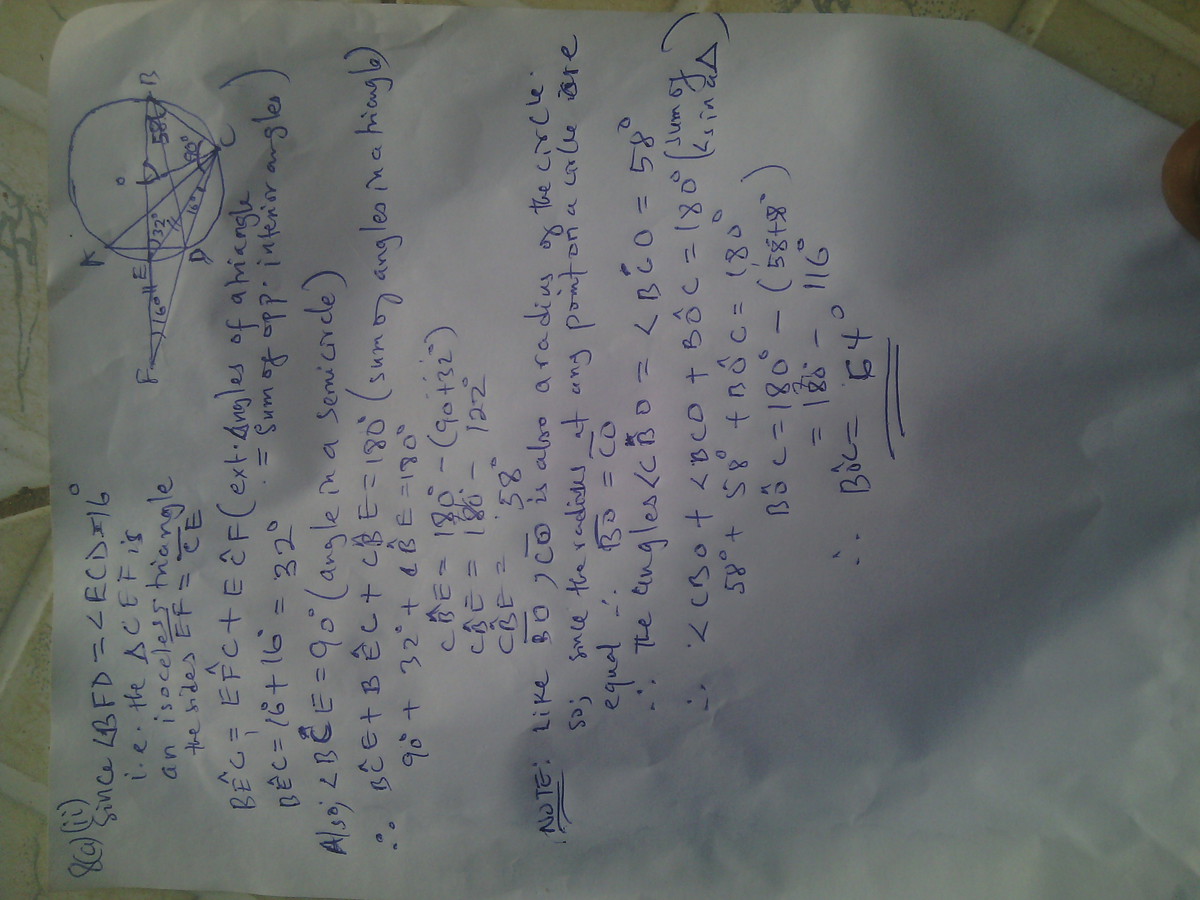 8(a)(ii)
Since <BFD = <ECD = 16°
i.e. the Δ CEF is
an isoceless triangle
the sides EF = CE
A
B
F
16°
E
32°
58
90°
C
16°
D
BÊC = EF̂C + EĈF (ext. Angles of a triangle
= sum of opp. interior angles)
BÊC = 16° + 16° = 32°
Also, <BĈE = 90° (angle in a semicircle)
∴ BĈE + BÊC + CB̂E = 180° (sum of angles in a triangle)
90° + 32° + CB̂E = 180°
CB̂E = 180° - (90° + 32°)
CB̂E = 180° - 122°
CB̂E = 58°
NOTE: Like BO, CO is also a radius of the circle.
So, since the radius at any point on a circle are
equal ∴ BO = CO
∴ The angles <CB̂O = <BĈO = 58°
∴ <CBO + <BCO + BÔC = 180° (sum of <s in a Δ)
58° + 58° + BÔC = 180°
BÔC = 180° - (58 + 58°)
= 180° - 116°
∴ BÔC = 64°